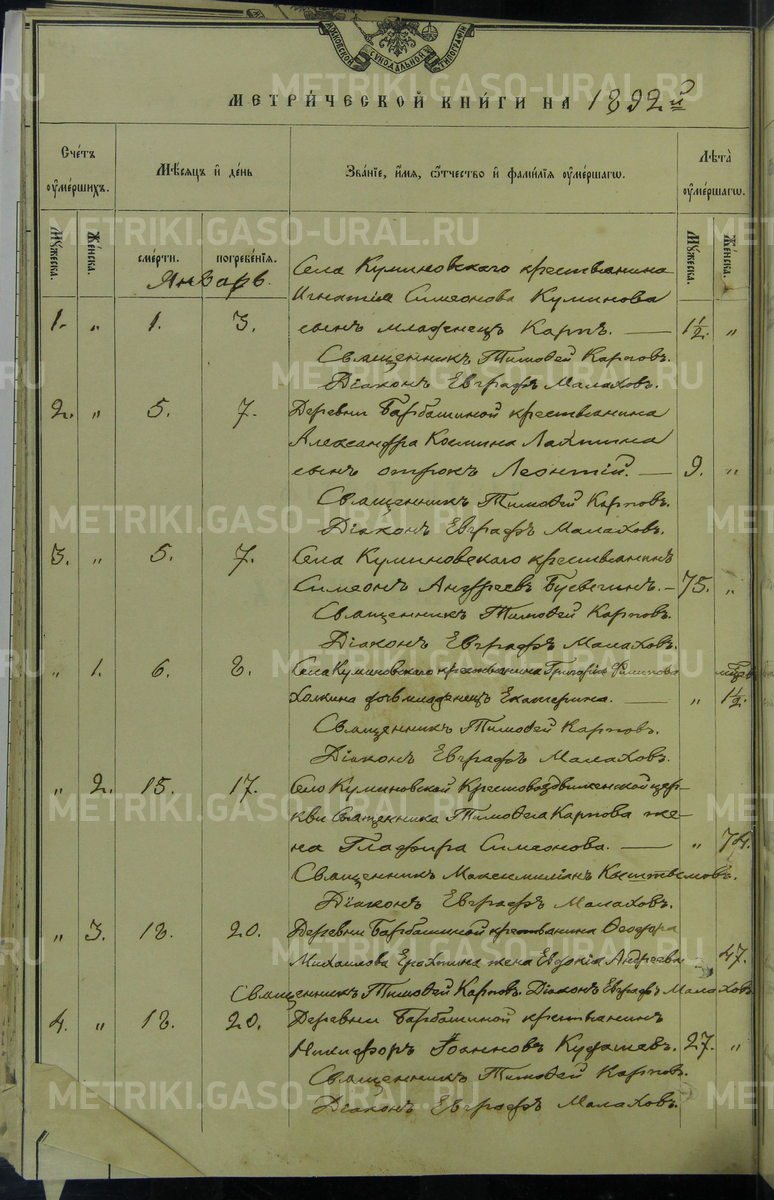 МОСКОВСКОЙ СѴНОДАЛЬНОЙ ТИПОГРАФІИ
МЕТРИ́ЧЕСКОЙ КНИ́ГИ НА 1892й
Сче́тъ ᲂу҆ме́ршихъ.
Мѣ́сѧцъ и҆ де́нь
Зва́нїе, и҆́мѧ, ѻ҆́тчество и҆ фами́лїѧ ᲂу҆ме́ршагѡ.
Лѣта̀ ᲂу҆ме́ршагѡ.
Мꙋ́жеска.
Же́нска.
сме́рти.
погребе́нїѧ.
Мꙋ́жеска.
Же́нска.
Январь.
Села Куминовскаго крестьянина
Игнатія Симеонова Куминова
1. „ 1. 3. сынъ младенецъ Карпъ. — 1½. „
Священникъ Тимоѳей Карповъ.
Діаконъ Евграфъ Малаховъ.
2. „ 5. 7. Деревни Барбашиной крестьянина
Александра Космина Лаптина
сынъ отрокъ Леонтій. — 9. „
Священникъ Тимоѳей Карповъ.
Діаконъ Евграфъ Малаховъ.
3. „ 5. 7. Села Куминовскаго крестьянинъ
Симеонъ Андреевъ — 75. „
Священникъ Тимоѳей Карповъ.
Діаконъ Евграфъ Малаховъ.
„ 1. 6. 8. Села Куминовскаго крестьянина Григорія Филипова
дочь младенецъ Екатерина. — „ 1½.
Священникъ Тимоѳей Карповъ.
Діаконъ Евграфъ Малаховъ.
„ 2. 15. 17. Село Куминовской Крестовоздвиженской цер-
кви Священника Тимоѳея Карпова же-
на Глафира Симеонова. — „ 74.
Священникъ Максимиліанъ
Діаконъ Евграфъ Малаховъ.
„ 3. 18. 20. Деревни Барбашиной крестьянина Ѳеодора
Михаилова Ерохина жена Евдокія Андреева 47.
Священникъ Тимоѳей Карповъ. Діаконъ Евграфъ Малаховъ.
4. „ 18. 20. Деревни Барбашиной крестьянинъ
Никифоръ Іоанновъ Кугаевъ. 27. „
Священникъ Тимоѳей Карповъ.
Діаконъ Евграфъ Малаховъ.
METRIKI.GASO-URAL.RU